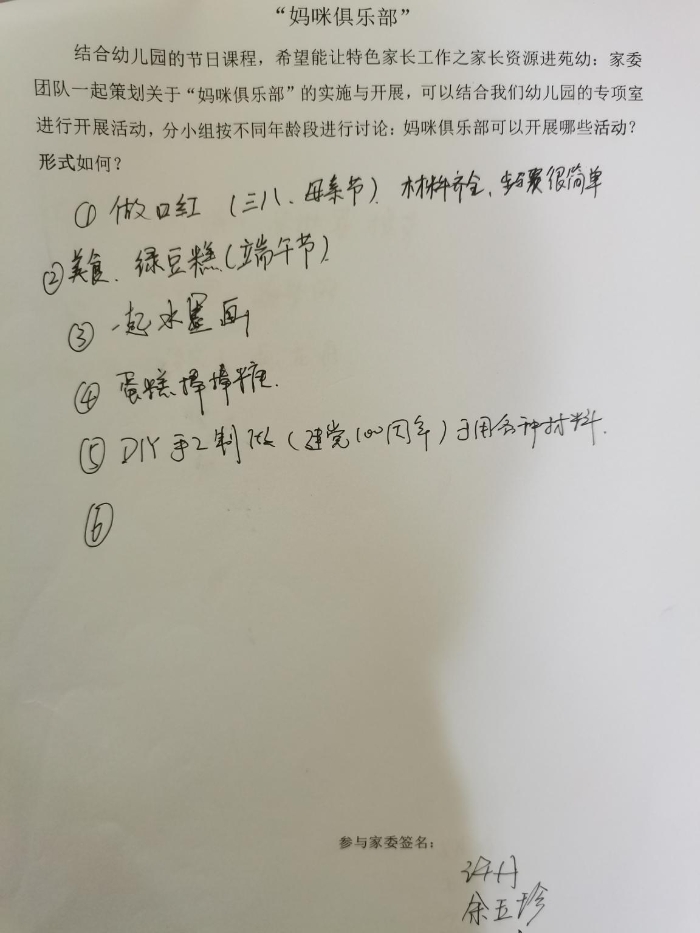 “妈咪俱乐部”
结合幼儿园的节日课程，希望能让特色家长工作之家长资源进苑幼：家委
团队一起策划关于“妈咪俱乐部”的实施与开展，可以结合我们幼儿园的专项室
进行开展活动，分小组按不同年龄段进行讨论：妈咪俱乐部可以开展哪些活动？
形式如何？
① 做口红（三八、母亲节）. 材料齐全、步骤很简单
②美食、绿豆糕（端午节）.
③ 一起水墨画
④ 蛋糕棒棒糖.
⑤ DIY手工制做（建党100周年）利用各种材料.
⑥
参与家委签名：
许月
余五珍